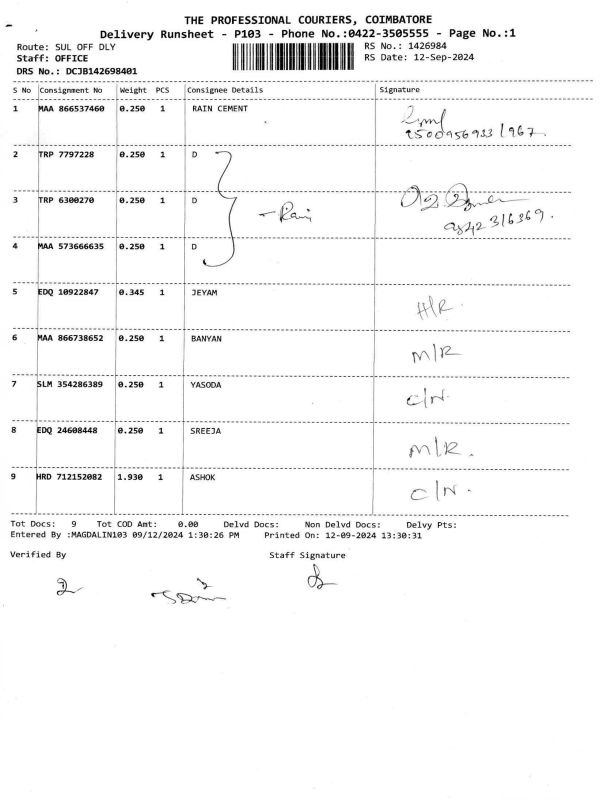 THE PROFESSIONAL COURIERS, COIMBATORE
Delivery Runsheet - P103 - Phone No.:0422-3505555 - Page No.:1
Route: SUL OFF DLY RS No.: 1426984
Staff: OFFICE RS Date: 12-Sep-2024
DRS No.: DCJB142698401
S No Consignment No Weight PCS Consignee Details Signature
1 MAA 866537460 0.250 1 RAIN CEMENT
9500956933/967.
2 TRP 7797228 0.250 1 D
3 TRP 6300270 0.250 1 D
- Rain
9842316369.
4 MAA 573666635 0.250 1 D
5 EDQ 10922847 0.345 1 JEYAM H/R.
6 MAA 866738652 0.250 1 BANYAN M/R
7 SLM 354286389 0.250 1 YASODA C/N.
8 EDQ 24608448 0.250 1 SREEJA M/R.
9 HRD 712152082 1.930 1 ASHOK C/N.
Tot Docs: 9 Tot COD Amt: 0.00 Delvd Docs: Non Delvd Docs: Delvy Pts:
Entered By :MAGDALIN103 09/12/2024 1:30:26 PM Printed On: 12-09-2024 13:30:31
Verified By Staff Signature